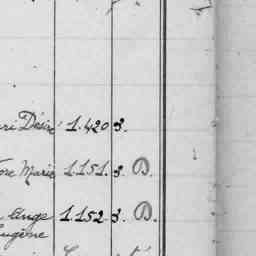 Désiré 1.420 3.
Marie 1.151. 3. B.
Ange 1.152 3. B.
Eugène